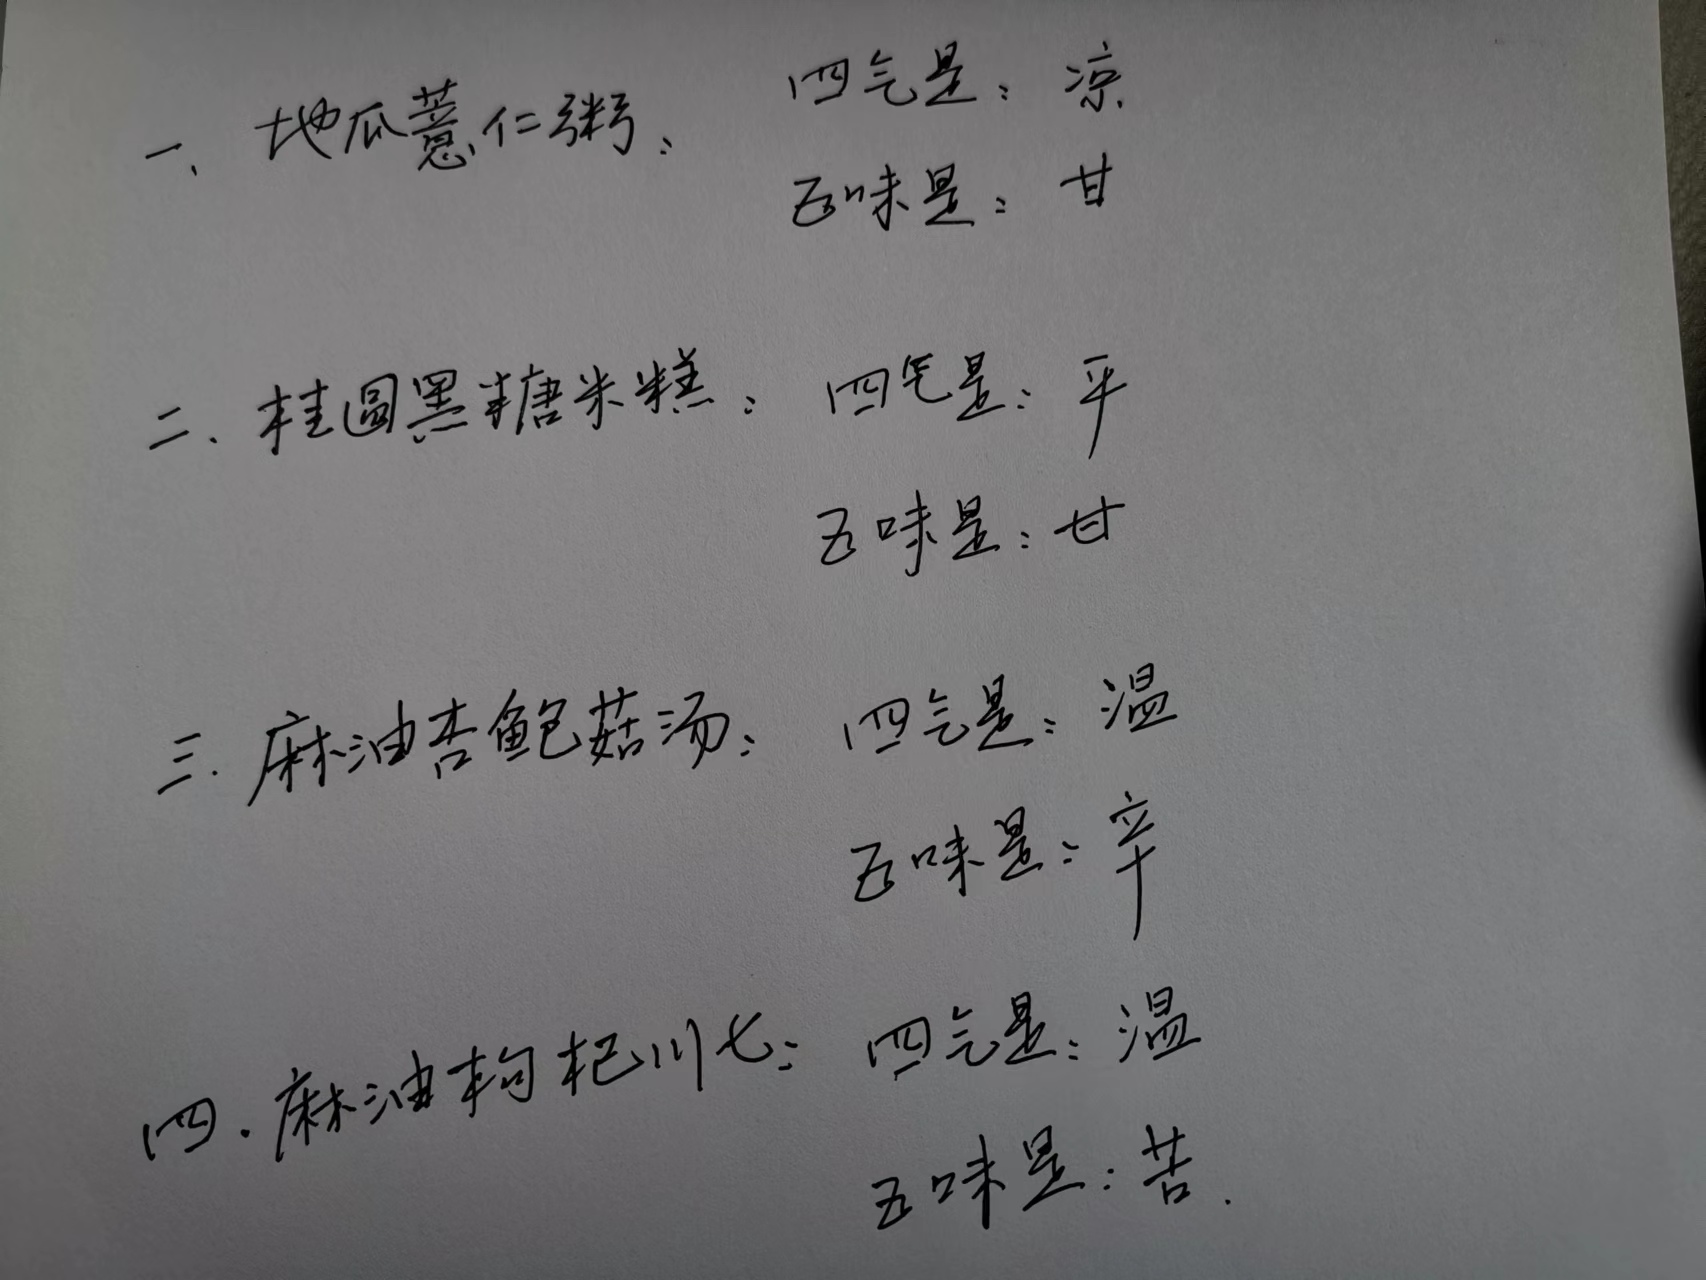 一、地瓜薏仁粥: 四气是: 凉
五味是: 甘
二、桂圆黑糖米糕: 四气是: 平
五味是: 甘
三. 麻油杏鲍菇汤: 四气是: 温
五味是: 辛
四. 麻油枸杞川七: 四气是: 温
五味是: 苦.